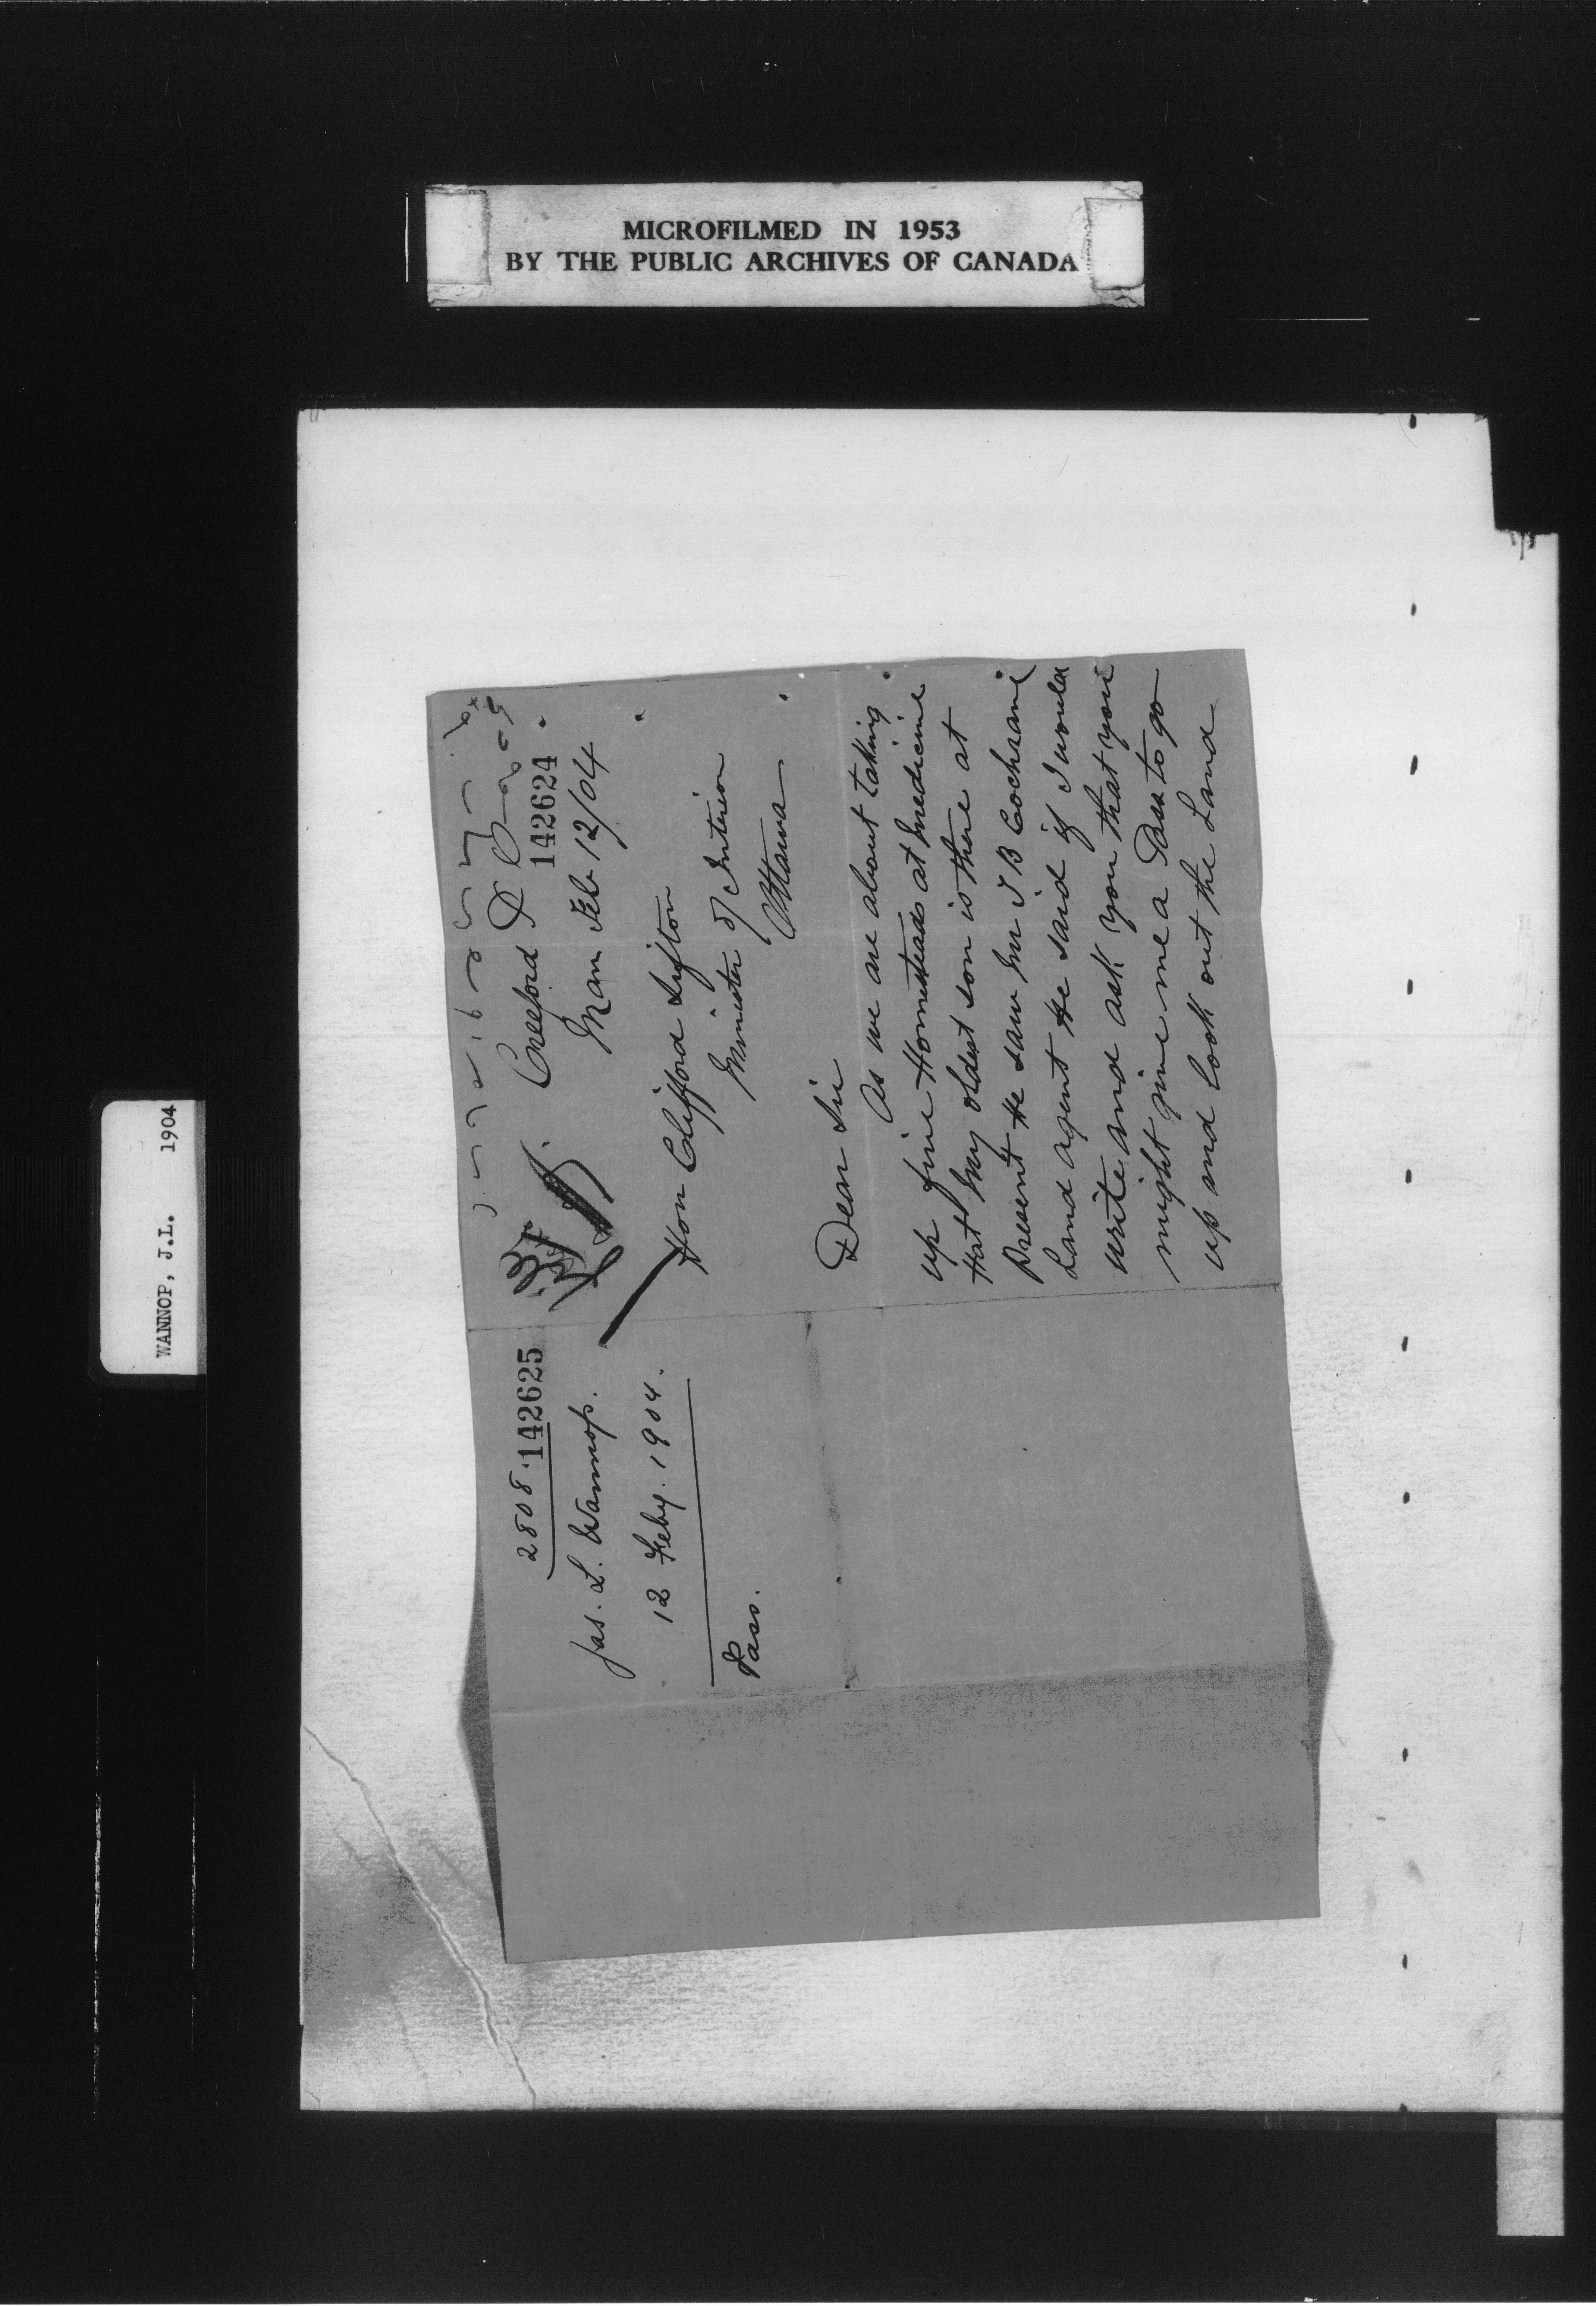 MICROFILMED IN 1953
BY THE PUBLIC ARCHIVES OF CANADA
WANNOP, J.L. 1904
2808 142625
Jas. L. Wannop.
12 Feby. 1904.
Pass.
Creeford P O
142624
Man Feb 12/04
Hon Clifford Sifton
Minister of Interior
Ottawa
Dear Sir
As we are about taking
up five Homesteads at Medicine
Hat My oldest son is there at
Present He saw Mr J B Cochrane
Land agent He said if I would
write and ask you that you
might give me a Pass to go
up and look out the Land